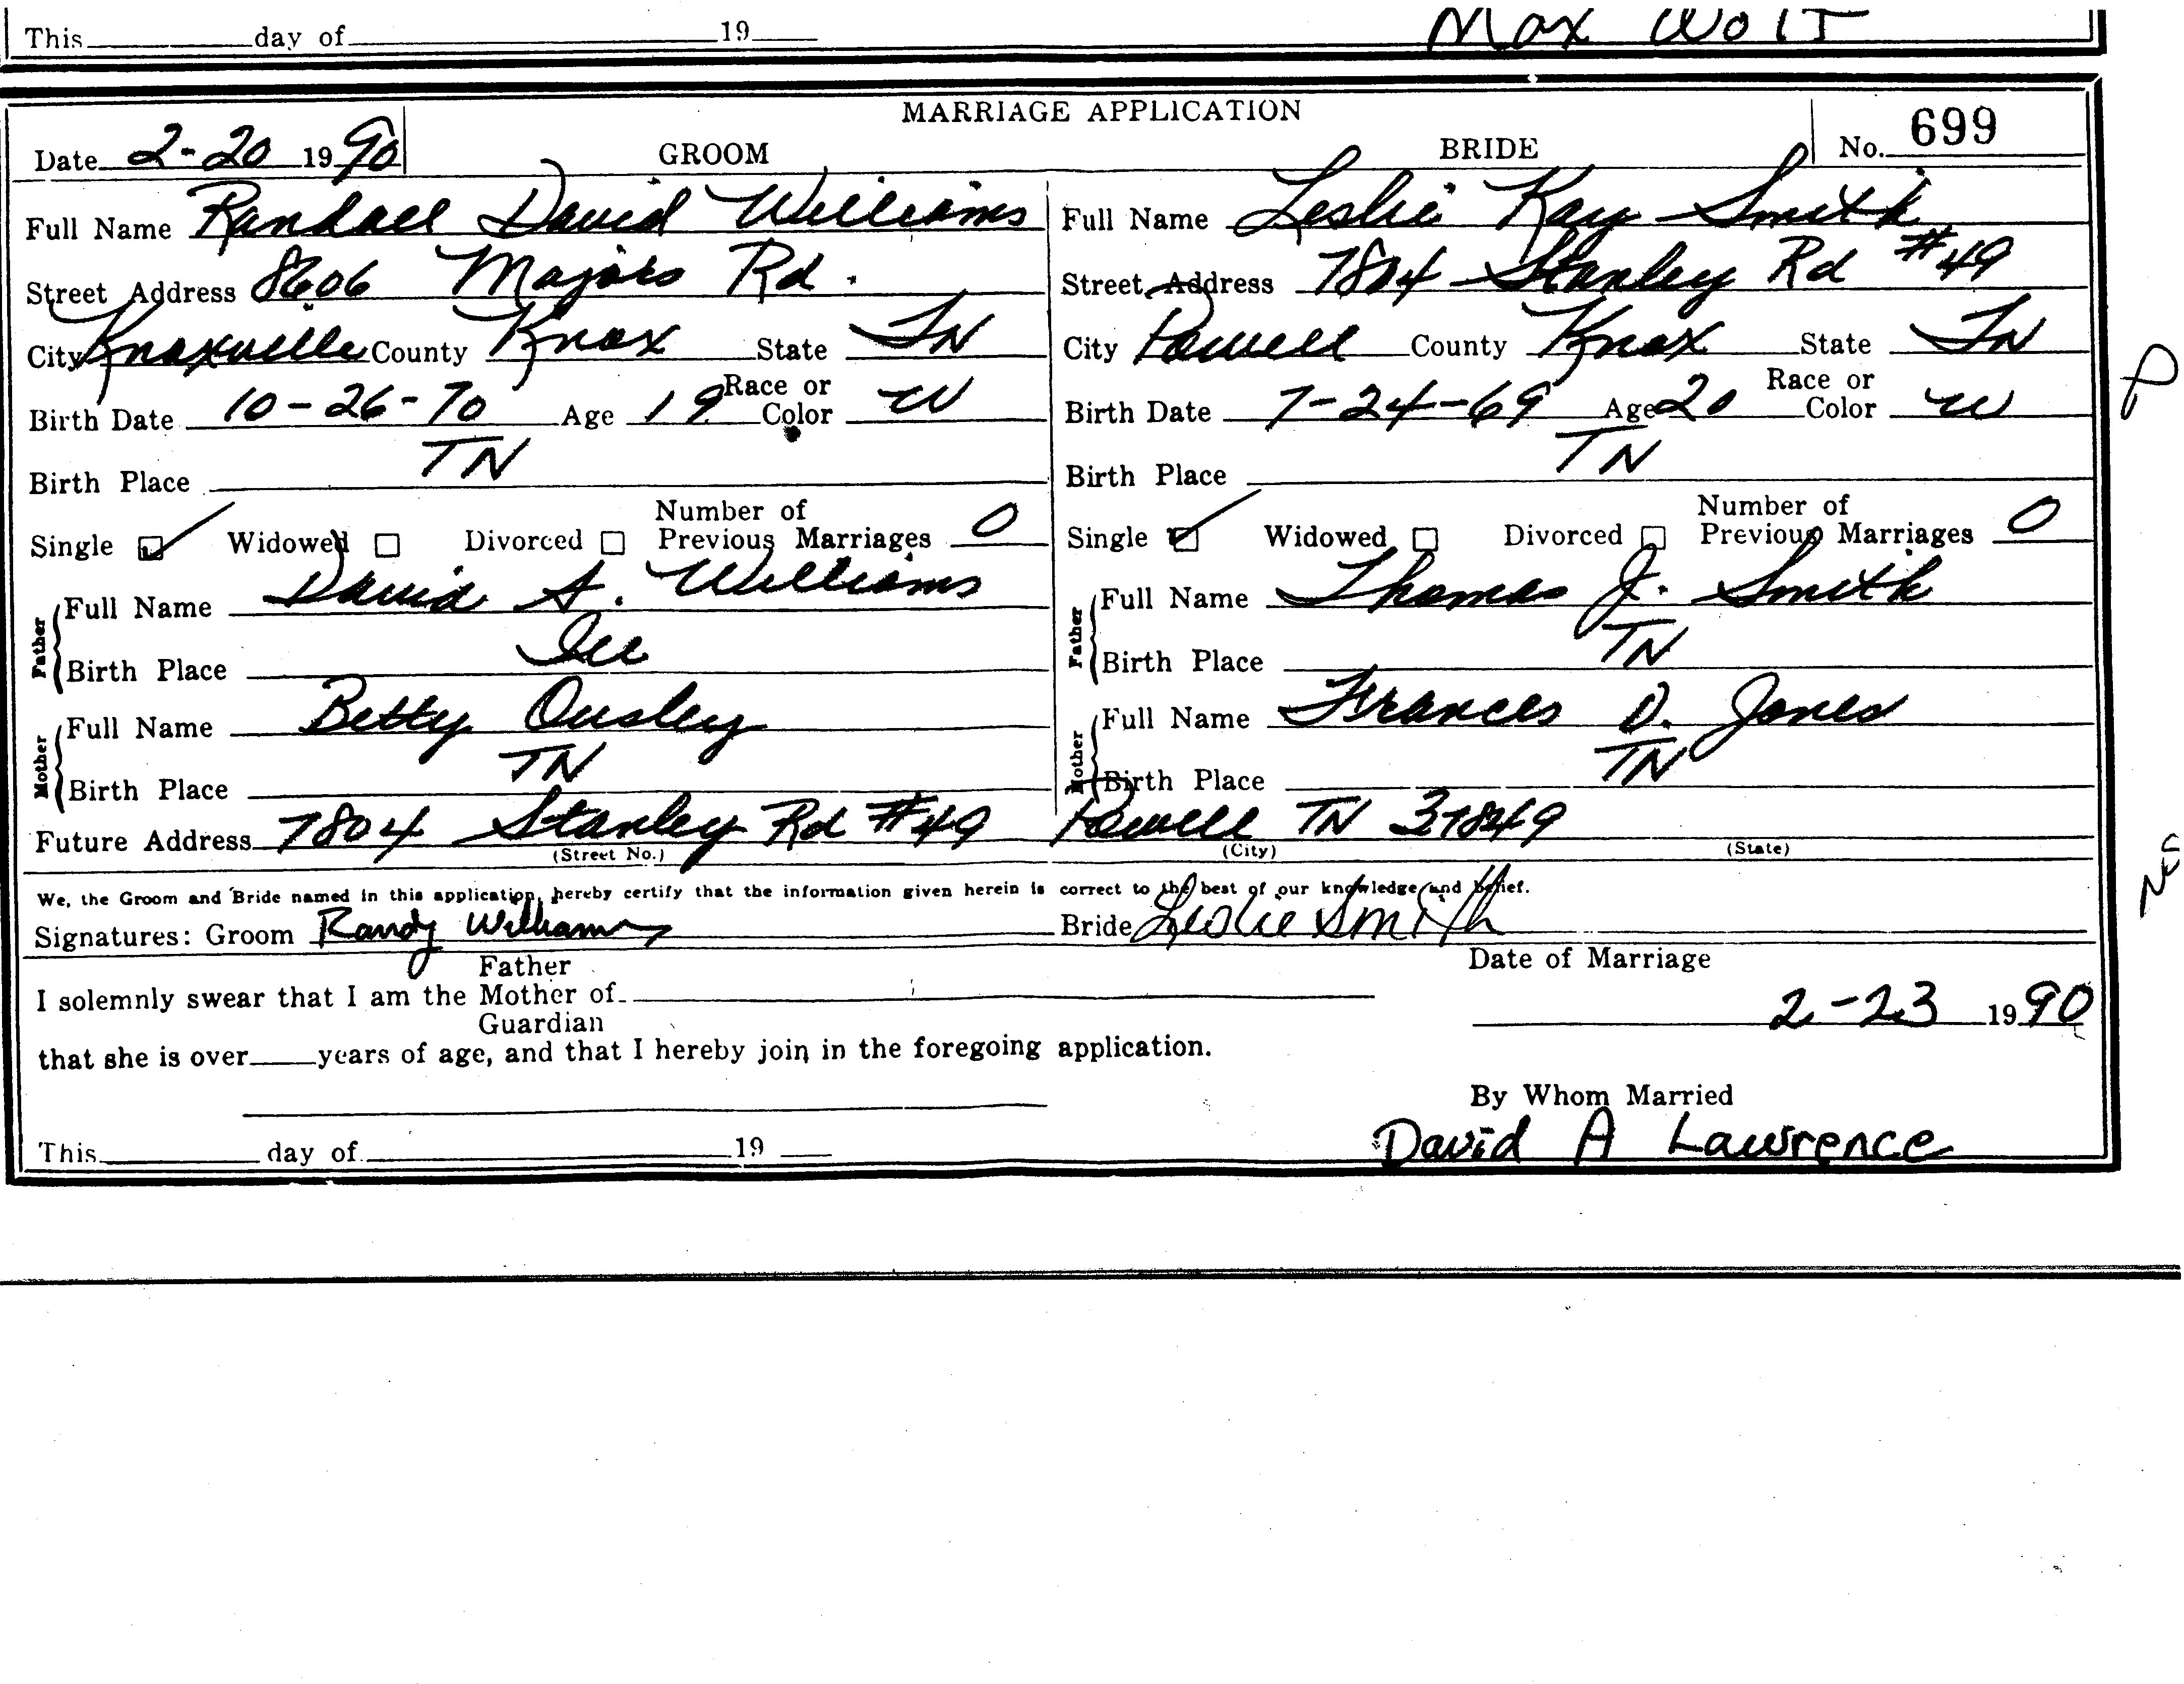 This day of 19 Max Wolf
MARRIAGE APPLICATION
Date 2-20 1990 GROOM BRIDE No. 699
Full Name Randall David Williams Full Name Leslie Kay Smith
Street Address 8606 Majors Rd. Street Address 7804 Stanley Rd #49
City Knoxville County Knox State TN City Powell County Knox State TN
Birth Date 10-26-70 Age 19 Race or Color W Birth Date 7-24-69 Age 20 Race or Color W
Birth Place TN Birth Place TN
Single Widowed Divorced Number of Previous Marriages 0 Single Widowed Divorced Number of Previous Marriages 0
Father Full Name David A. Williams Father Full Name Thomas J. Smith
Birth Place Ill Birth Place TN
Mother Full Name Betty Ousley Mother Full Name Frances D. Jones
Birth Place TN Birth Place TN
Future Address 7804 Stanley Rd #49 Powell TN 37849
(Street No.) (City) (State)
We, the Groom and Bride named in this application, hereby certify that the information given herein is correct to the best of our knowledge and belief.
Signatures: Groom Randy Williams Bride Leslie Smith
Father Date of Marriage
I solemnly swear that I am the Mother of
Guardian 2-23 1990
that she is over years of age, and that I hereby join in the foregoing application.
By Whom Married
This day of 19 David A Lawrence